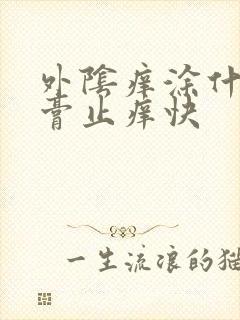 外陰痒涂什
膏止痒快
一生流浪的猫